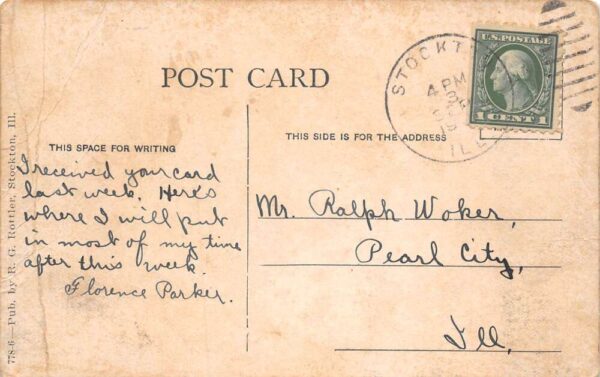 POST CARD
THIS SPACE FOR WRITING
THIS SIDE IS FOR THE ADDRESS
U.S. POSTAGE
1 CENT 1
STOCKT
4 PM
ILL
I received your card
last week. Here's
where I will put
in most of my time
after this week.
Florence Parker.
Mr. Ralph Woker,
Pearl City,
Ill,
778-6—Pub. by R. G. Rottler, Stockton, Ill.